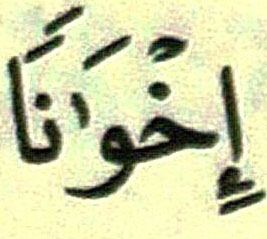 إِخْوَٰنًا